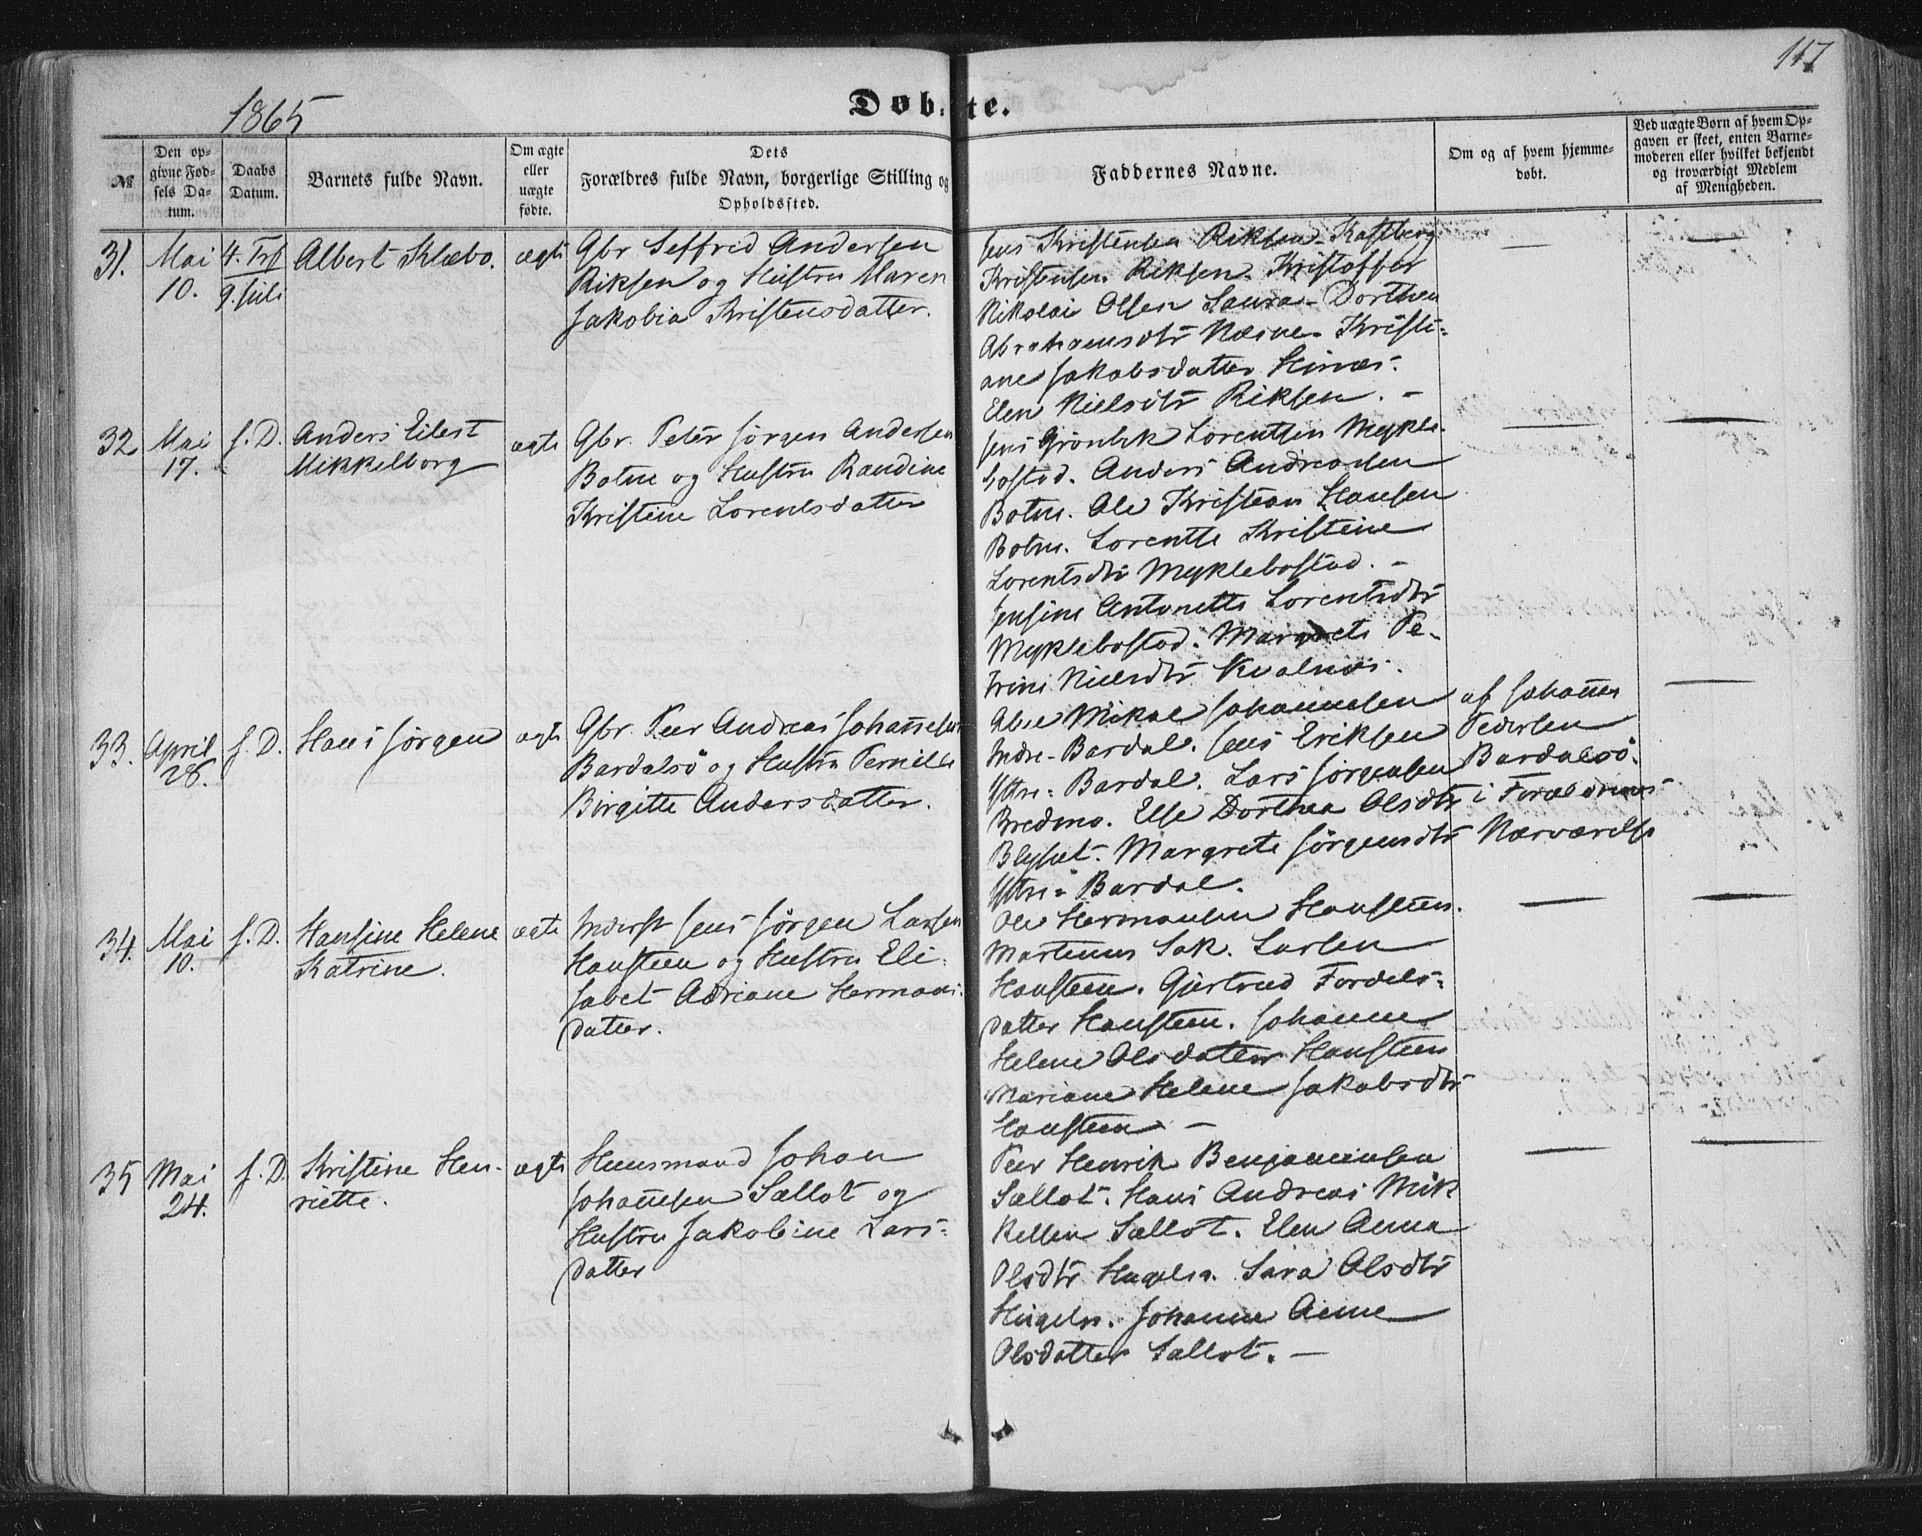 117
1865
Døbte.
№
Den opgivne Fødsels Datum.
Daabs Datum.
Barnets fulde Navn.
Om ægte eller uægte fødte.
Dets Forældres fulde Navn, borgerlige Stilling og Opholdssted.
Faddernes Navne.
Om og af hvem hjemmedøbt.
Ved uægte Børn af hvem Opgaven er skeet, enten Barnemoderen eller hvilket bekjendt og troværdigt Medlem af Menigheden.
31. Mai 10.
9. Juli
Albert Klæbo.
ægte
Gbr Seffred Andersen
Riksen og Hustru Maren
Jakobia Kristensdatter.
Jens Kristensen Riksen
Kristensen Riksen. Kristoffer
Nikolai Olsen Laura Dorthea
Abrahamsdtr Næsne. Kristi-
ane Jakobsdatter
Elen Nielsdtr Riksen. -
32 Mai 17.
f. D.
Anders Eilert
Mikkelborg
ægte
Gbr. Peter Jørgen Andersen
Botne og Hustru Randine
Kristine Lorentsdatter
Jens Grönbek Lorentsen Mykle-
bostad. Anders Andreasen
Botn. Ole Kristian Hansen
Botn. Lorentse Kristine
Lorentsdtr Myklebostad. -
Jensine Antonette Lorentsdtr
Myklebostad. Margrete Pe-
trine Nielsdtr Kvalnæs.
33. April 28.
f. D.
Hans Jørgen
ægte
Gbr. Peer Andreas Johannesen
Bardalsö og Hustru Pernille
Birgitte Andersdatter.
Mikal Johannesen
Indre-Bardal. Jens Eriksen
Ytre-Bardal. Lars Jørgensen
Bredmo. Else Dorthea Olsdtr
Margrete Jørgensdtr
Ytre-Bardal.
af Johannes
Pedersen
Bardalsö.
i Forældrenes
Nærværelse
34. Mai 10.
f. D.
Hansine Helene
Katrine.
ægte
Inderst Jens Jørgen Larsen
Hansteen og Hustru Eli-
sabet Adriane Hermans-
datter.
Ole Hermansen Hansteen.
Martinus Sak. Larsen
Hansteen. Gjertrud Fordels-
datter Hansteen. Johanne
Helene Olsdatter Hansteen
Mariane Helene Jakobsdtr
Hansteen -
35 Mai 24.
f. D.
Kristine Hen-
riette.
ægte
Huusmand Johan
Johannesen Sællot og
Hustru Jakobine Lars-
datter
Peer Henrik Benjaminsen
Sællot. Hans Andreas Mik
kelsen Sællot. Elen Anna
Olsdtr Hugeln. Sara Olsdtr
Hugeln. Johanne Anne
Olsdatter Sællot. -